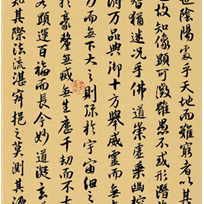 也陰陽處乎天地而難窮者以其
故知象顯可徵雖愚不惑形潛
智猶迷況乎佛道崇虛乘幽控
濟萬品典御十方舉威靈而無
力而無下大之則彌於宇宙細之
於豪釐無滅無生歷千劫而不古
若顯運百福而長今妙道凝玄
知其際法流湛寂挹之莫測其源